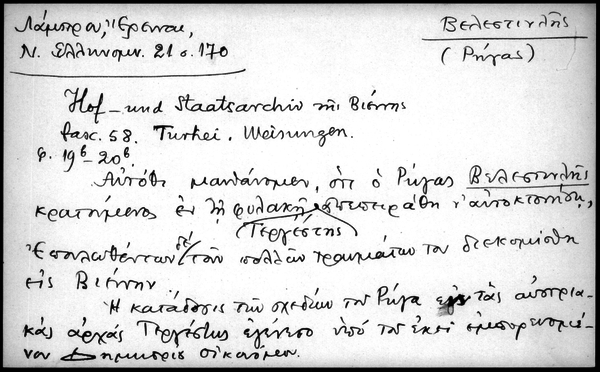 Λάμπρου, Ἔρευναι,
Ν. Ἑλληνομν. 21 σ. 170
Βελεστινλῆς
(Ρήγας)
Hof- und Staatsarchiv τῆς Βιέννης
fasc. 58. Turkei. Weisungen.
φ. 19β-20β.
Αὐτόθι μανθάνομεν, ὅτι ὁ Ρήγας Βελεστινλῆς
κρατούμενος ἐν τῇ φυλακῇ ἀπεπειράθη ν' αὐτοκτονήσῃ,
Τεργέστης
Ἐπουλωθέντων δὲ τῶν πολλῶν τραυμάτων του διεκομίσθη
εἰς Βιέννην.
Ἡ κατάδοσις τῶν σχεδίων τοῦ Ρήγα εἰς τὰς αὐστρια-
κὰς ἀρχὰς Τεργέστης ἐγένετο ὑπὸ τοῦ ἐκεῖ ἐμπορευομέ-
νου Δημητρίου Οἰκονόμου.